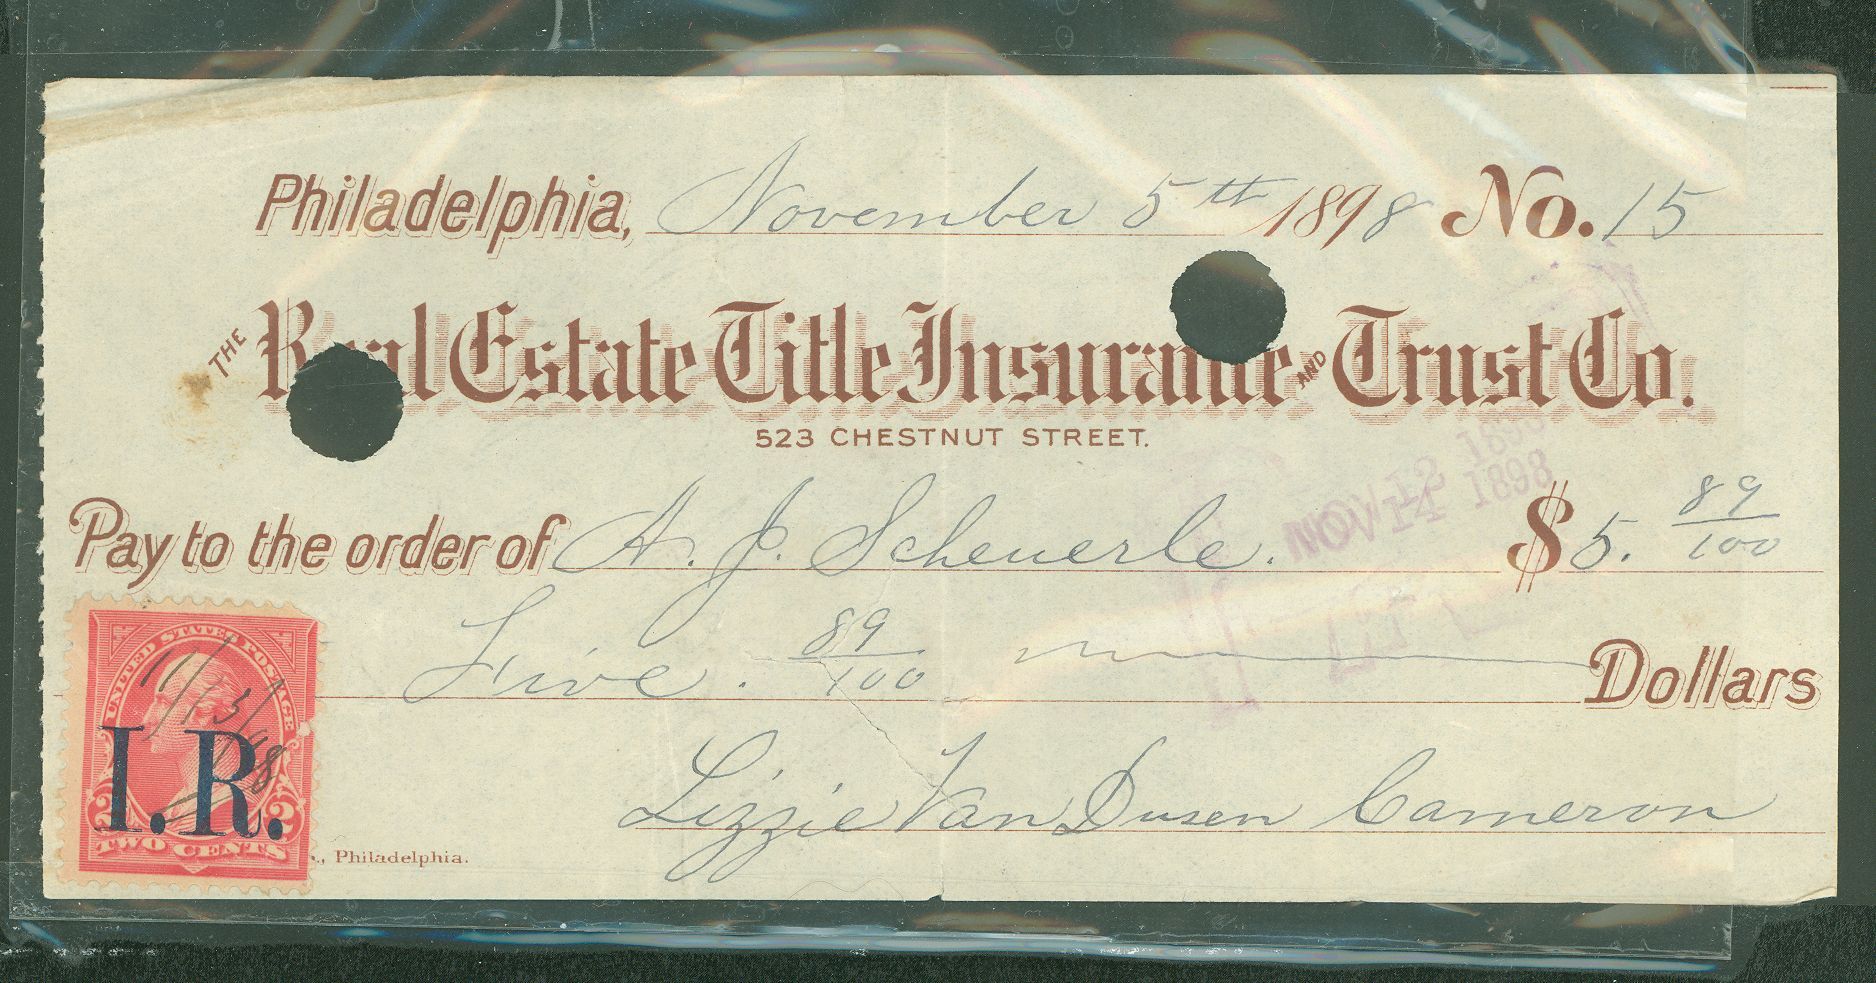 Philadelphia, November 5th 1898 No. 15
THE Real Estate Title Insurance AND Trust Co.
523 CHESTNUT STREET.
NOV 12 1898
NOV 14 1898
Pay to the order of A. J. Scheuerle. $5. 89/100
Five. 89/100 Dollars
UNITED STATES POSTAGE
11/5/98
I.R.
2 2
TWO CENTS
Lizzie Van Dusen Cameron
., Philadelphia.